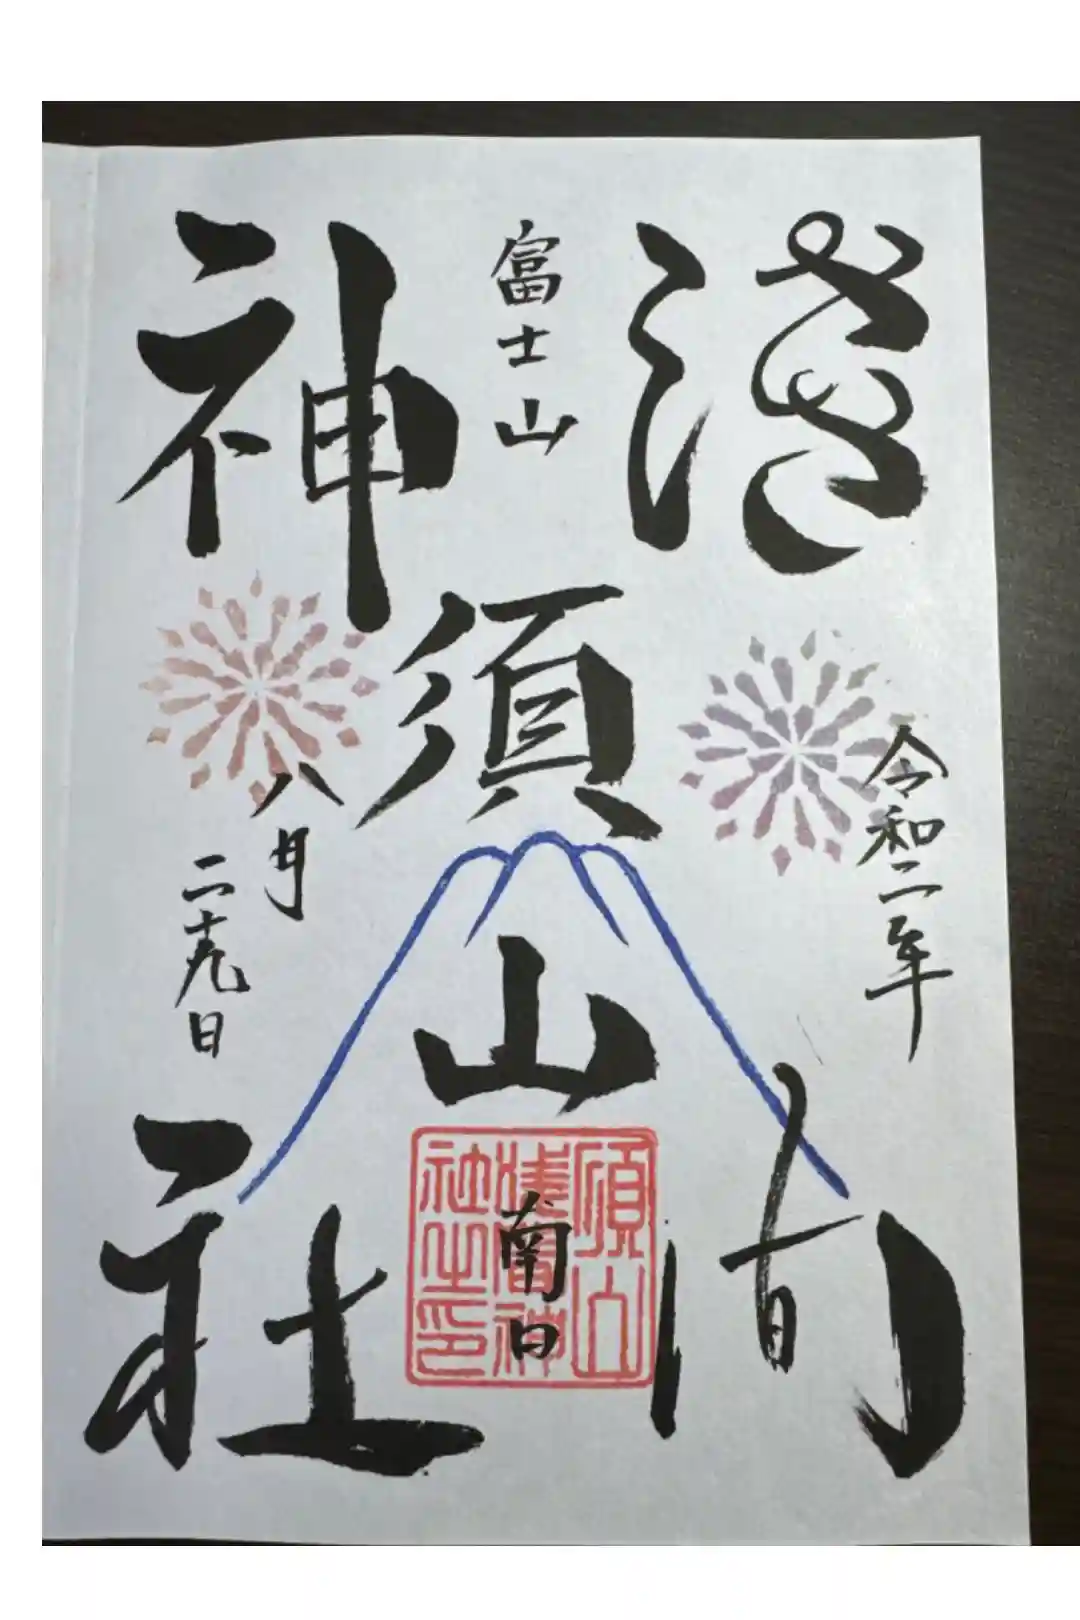 浅間
令和二年
富士山
須山
南口
須山
浅間神
社之印
神社
八月
二十九日